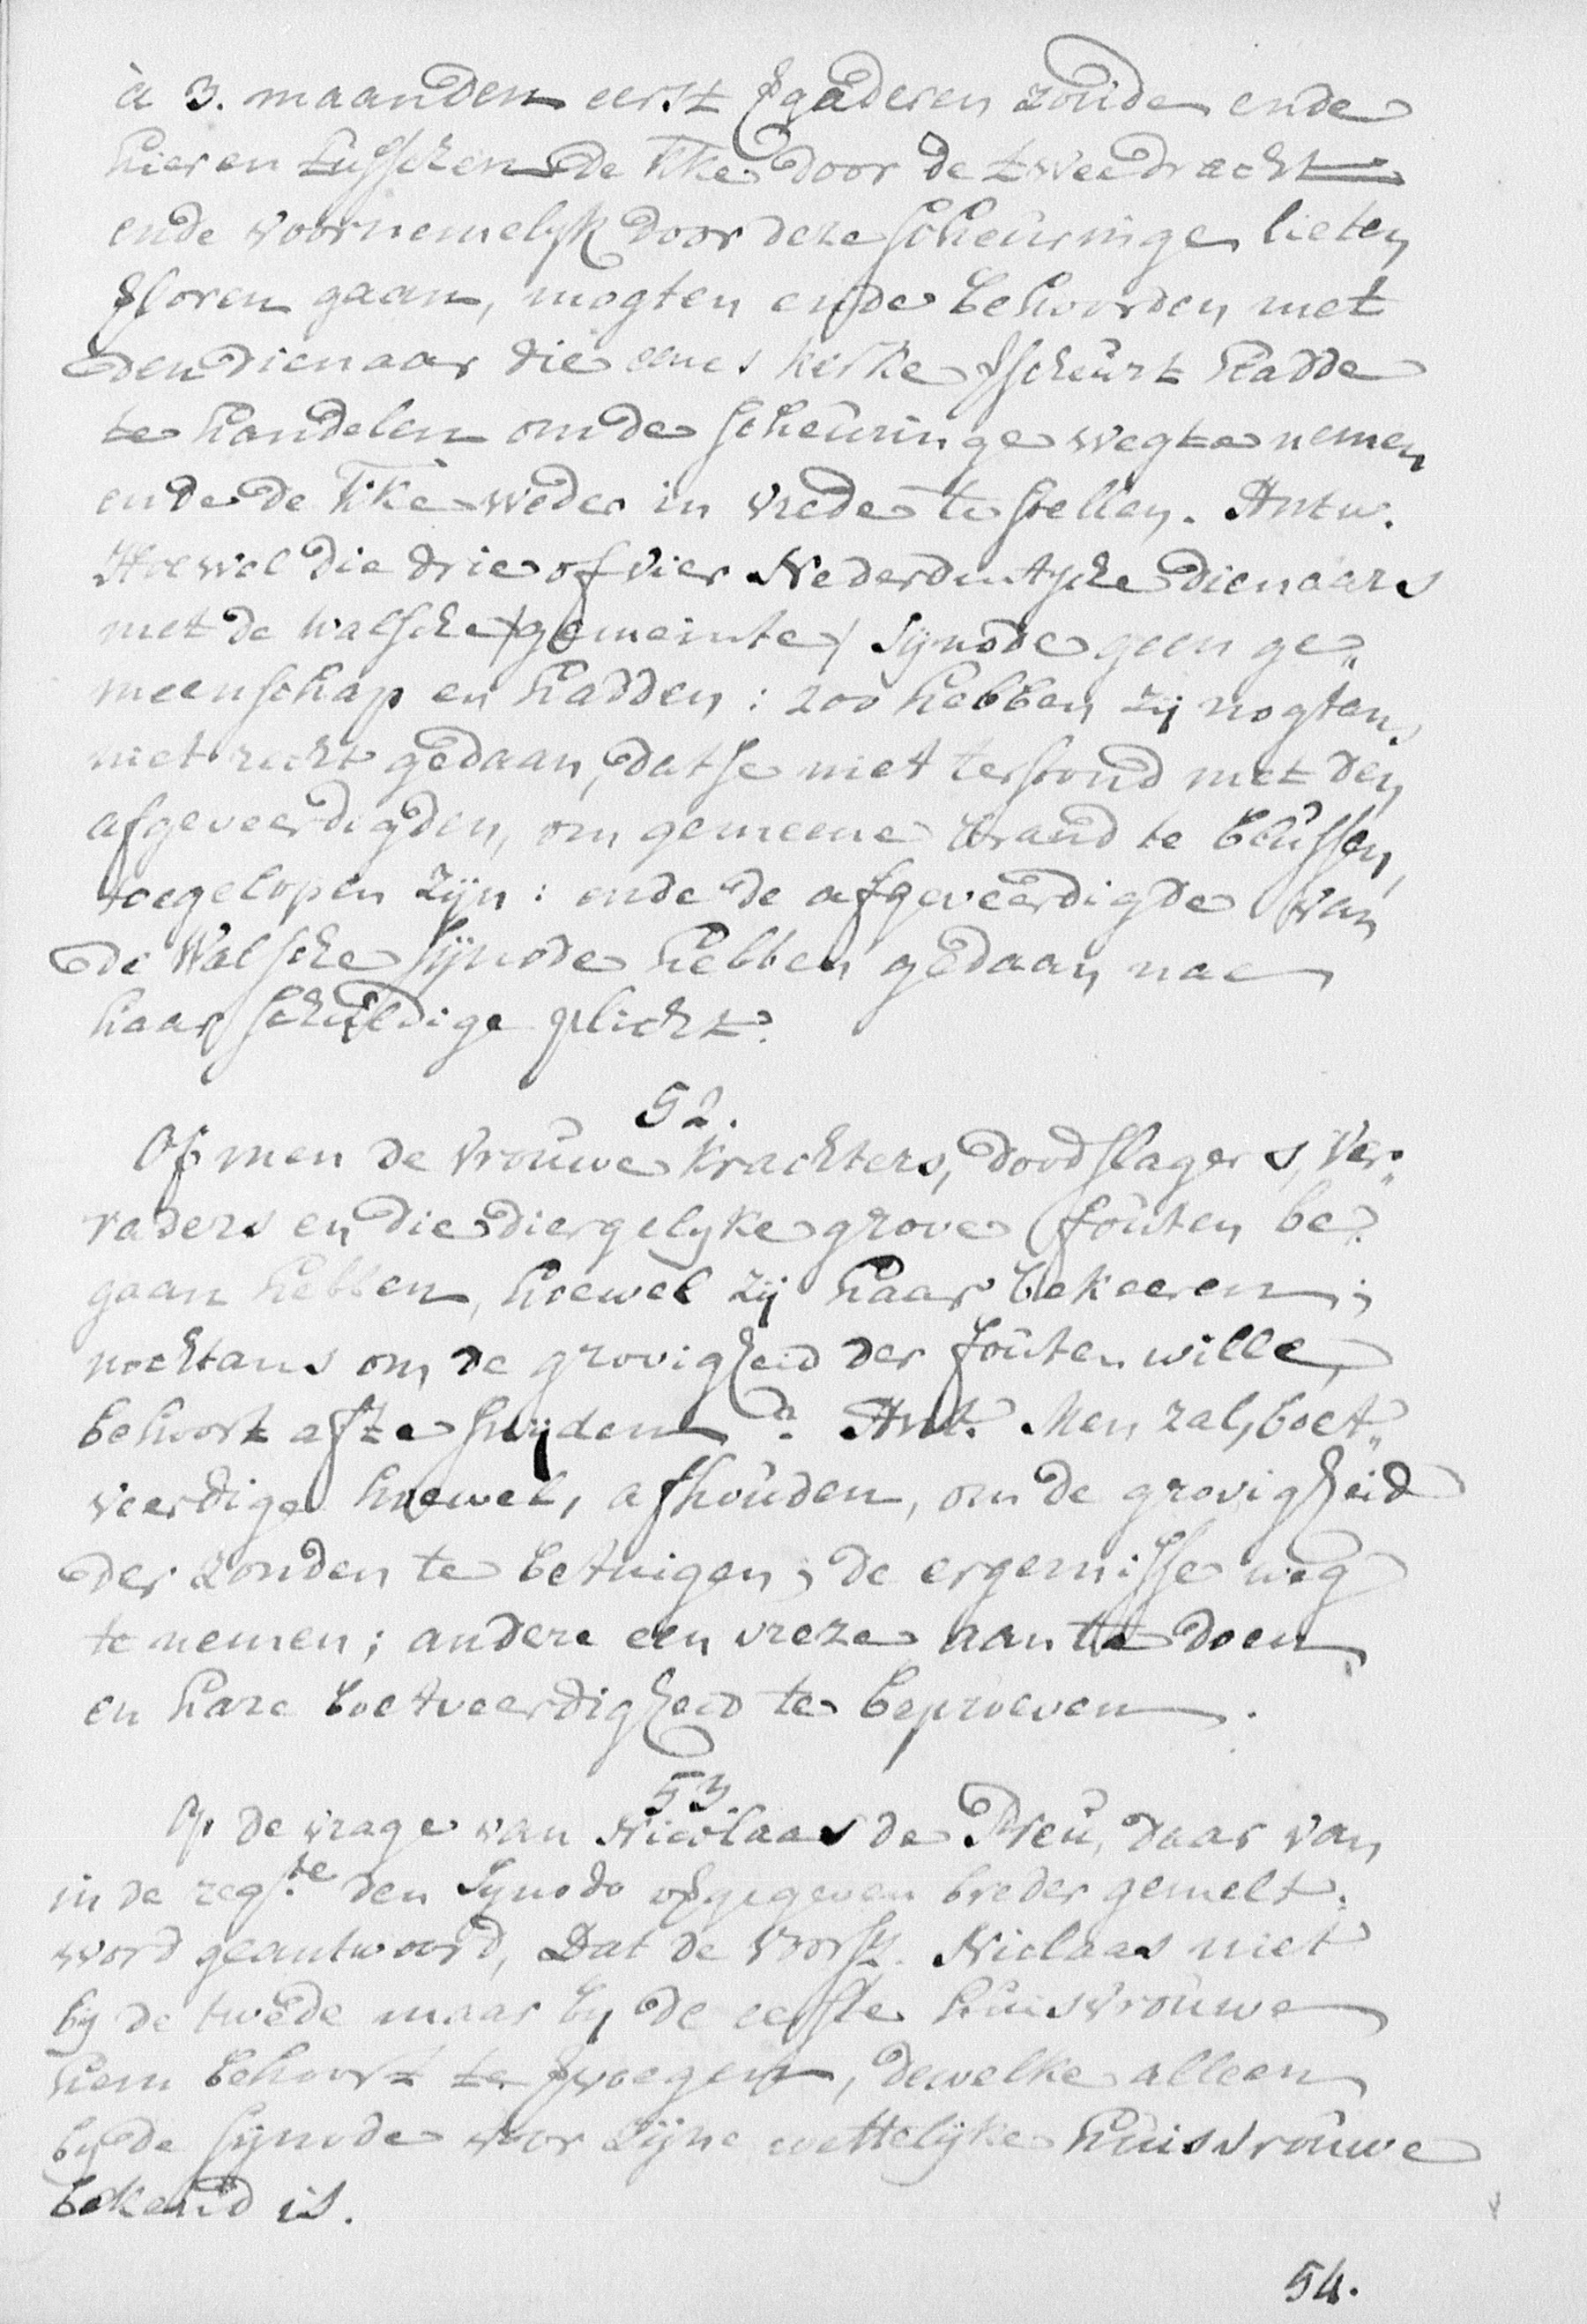 à 3. maanden eerst Vgaderen zoude ende
hier en tusschen de Kke door de tweedracht
ende voornemelyk door deze scheuringe lieten
Vloren gaan, mogten ende behoorden met
den dienaar die eenes kerke Vscheurt hadde
te handelen om de scheuringe weg te nemen
ende de Kke weder in vrede te stellen. Antw.
Hoewel die drie of vier Nederduitsche dienaars
met de walsche (gemeinte) Synode geen ge„
meenschap en hadden: zoo hebben zij nogtans
niet recht gedaan, datse niet terstond met den
afgeveerdigden, om gemeene brand te blussen,
toegelopen zijn: ende de afgeveerdigde van
de Walsche synode hebben gedaan nae
haar schuldige plicht.
52.
Of men de Vrouwe krachters, doodslagers, Ver„
raders en die diergelyke grove fouten be„
gaan hebben, hoewel zij haar bekeeren;
nochtans om de grovigheid der fouten wille,
behoort af te snijden? Antw. Men zal, boet„
veerdige hoewel, afhouden, om de grovigheid
der zonden te betuigen; de ergernisse weg
te nemen; andere een vreze aan te doen
en hare boetveerdigheid te beproeven.
53.
Op de vrage van Nicolaas de Preu, daar van
in de regste. den Synodo opgegeven breder gemelt.
word geantwoord, Dat de voorsz. Niclaas niet
by de twede maar by de eerste huisvrouwe
hem behoort te Vvoegen, dewelke alleen
by de synode voor zijne wettelijke huisvrouwe
bekend is.
54.